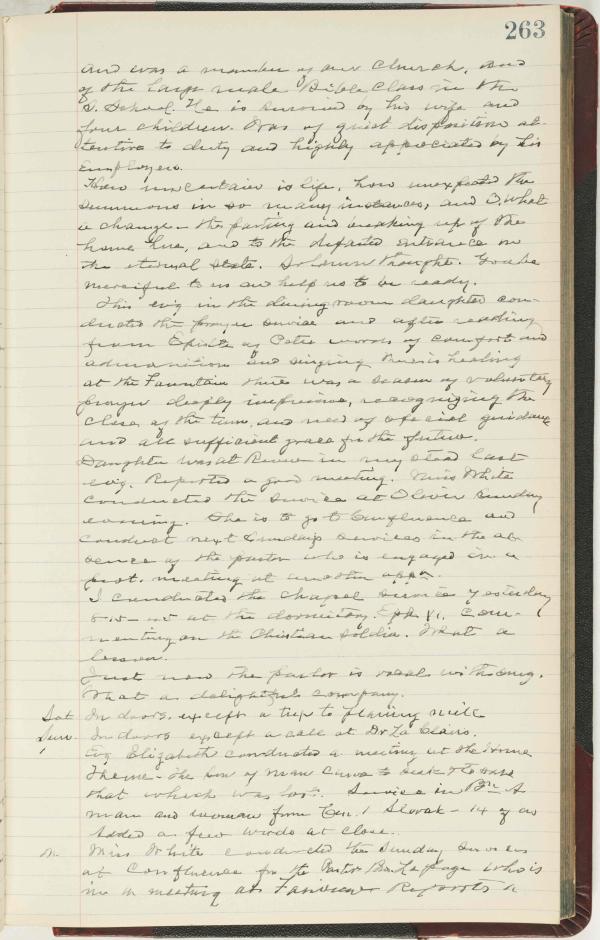 263
and was a member of our Church, and
of the large male Bible Class in the
S. School. He is survived by his wife and
four children. Was of quiet disposition at-
tentive to duty and highly appreciated by his
Employers.
How uncertain is life, how unexpected the
summons in so many instances, and O, what
a change - the parting and breaking up of the
home here, and to the departed entrance on
the eternal state. Solemn thought. God be
merciful to us and help us to be ready.
This evg in the dining room daughter con-
ducted the prayer service and after reading
from Epistle of Peter words of comfort and
admonition and singing there is healing
at the Fountain there was a season of voluntary
prayer deeply impressive, recognizing the
close of the term, and need of special guidance
and all sufficient grace for the future.
Daughter was at in my stead last
evg. Reported a good meeting. Miss White
conducted the service at Sunday
evening. She is to go to Confluence and
conduct next Sundays services in the ab-
sence of the pastor who is engaged in a
prot. meeting at another appt.
I conducted the chapel service yesterday
at the dormitory. Eph VI. Com-
menting on the Christian soldier. What a
lesson.
Just now the parlor is vocal with song.
What a delightful company.
Sat In doors, except a trip to planing mill
Sun. In doors except a call at Dr La Clairs.
Evg Elizabeth conducted a meeting at the Home
Theme - The Son of man came to seek & to save
that which was lost. Service in A
man and woman from Slovak - 14 of us
Added a few words at close.
M. Miss White conducted the Sunday services
at Confluence for the Pastor Bro. Lepage who is
in a meeting at Reports a